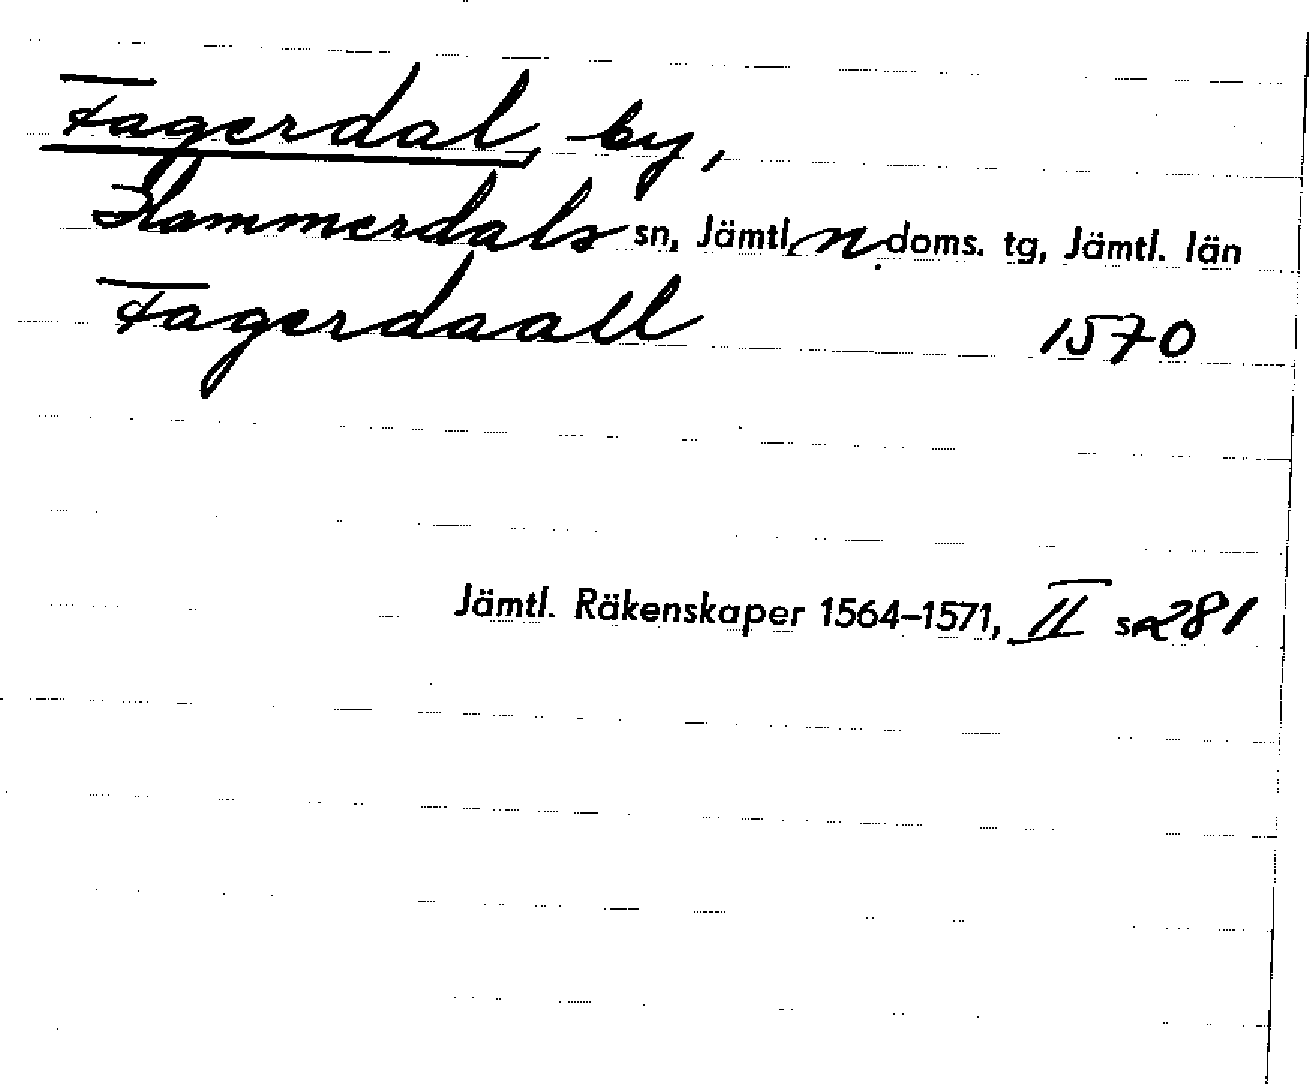 Fagerdal, by,
Hammerdals sn, Jämtl. n. doms. tg, Jämtl. län
Fagerdaall 1570
Jämtl. Räkenskaper 1564–1571, II s. 281